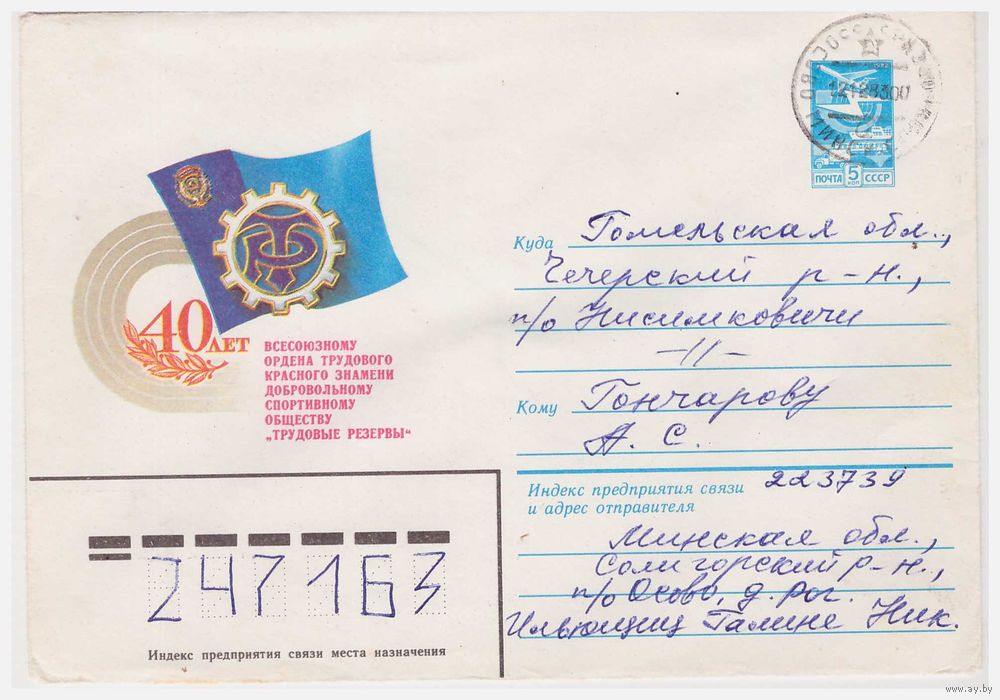 1982
ПОЧТА 5 КОП СССР
12128300
40 ЛЕТ
ВСЕСОЮЗНОМУ
ОРДЕНА ТРУДОВОГО
КРАСНОГО ЗНАМЕНИ
ДОБРОВОЛЬНОМУ
СПОРТИВНОМУ
ОБЩЕСТВУ
„ТРУДОВЫЕ РЕЗЕРВЫ“
Куда Гомельская обл.,
Чечерский р-н.,
п/о Нисимковичи
—//—
Кому Гончарову
А. С.
Индекс предприятия связи 223739
и адрес отправителя
Минская обл.,
Солигорский р-н.,
п/о Осово, д. Рог.
Ильющиц Галине Ник.
247163
Индекс предприятия связи места назначения
www.ay.by